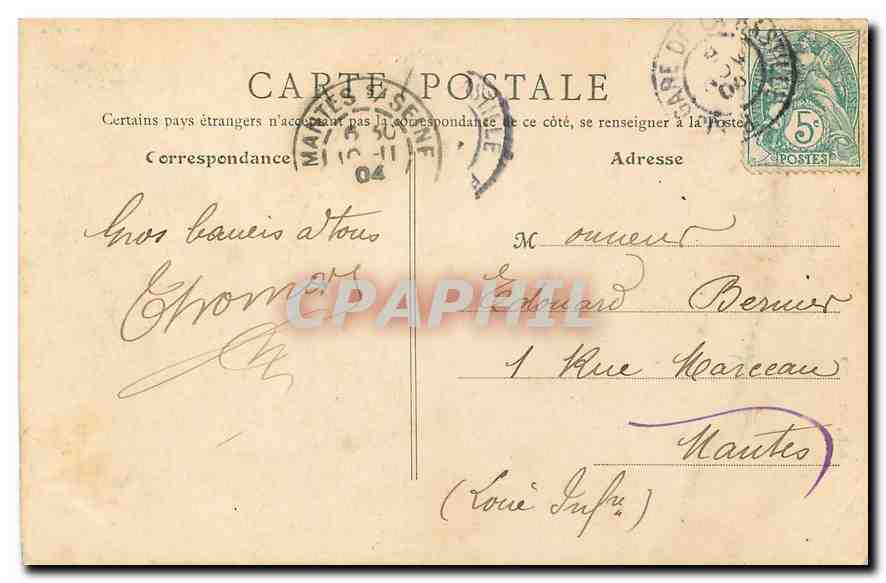 CARTE POSTALE
Certains pays étrangers n'acceptant pas la correspondance de ce côté, se renseigner à la Poste
Correspondance
Adresse
MANTES S/ SEINE
04
GARE DE
5c
POSTES
Gros baucis à tous
Thomas
Monsieur
Edouard Bernier
1 Rue Marceau
Nantes
(Loire Infre)
CPAPHIL